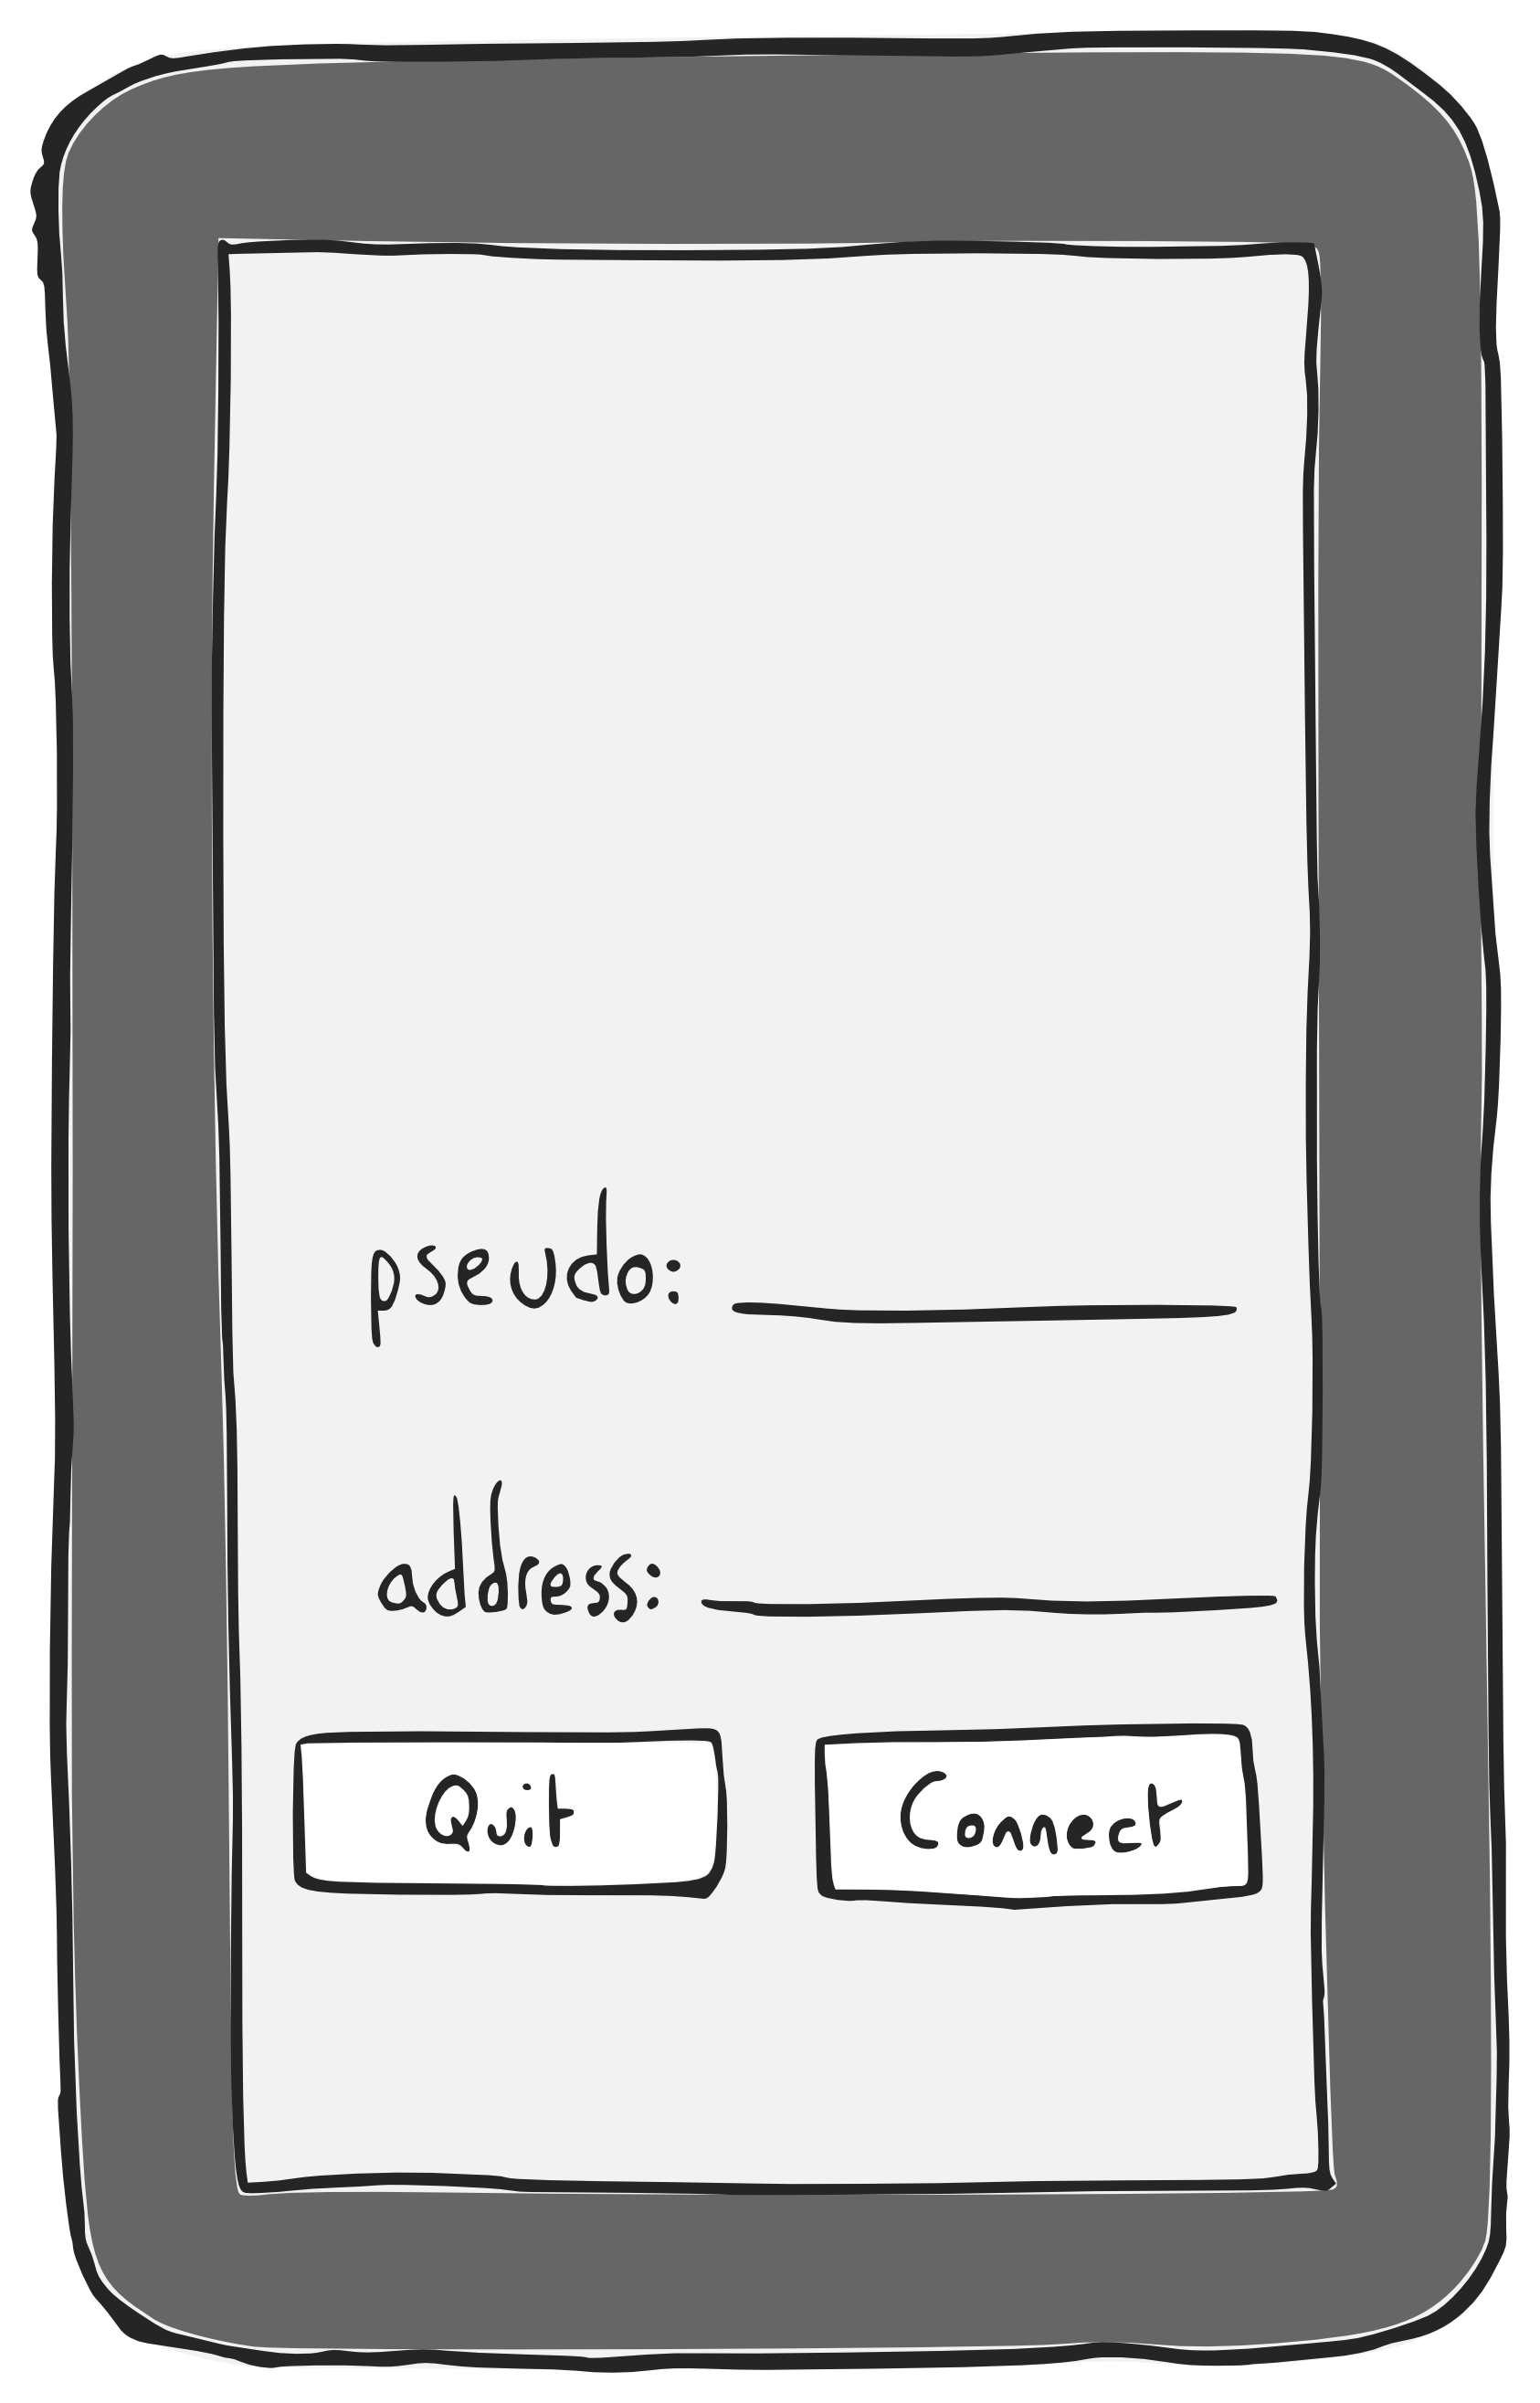 pseudo:
adress:
Quit
Connect